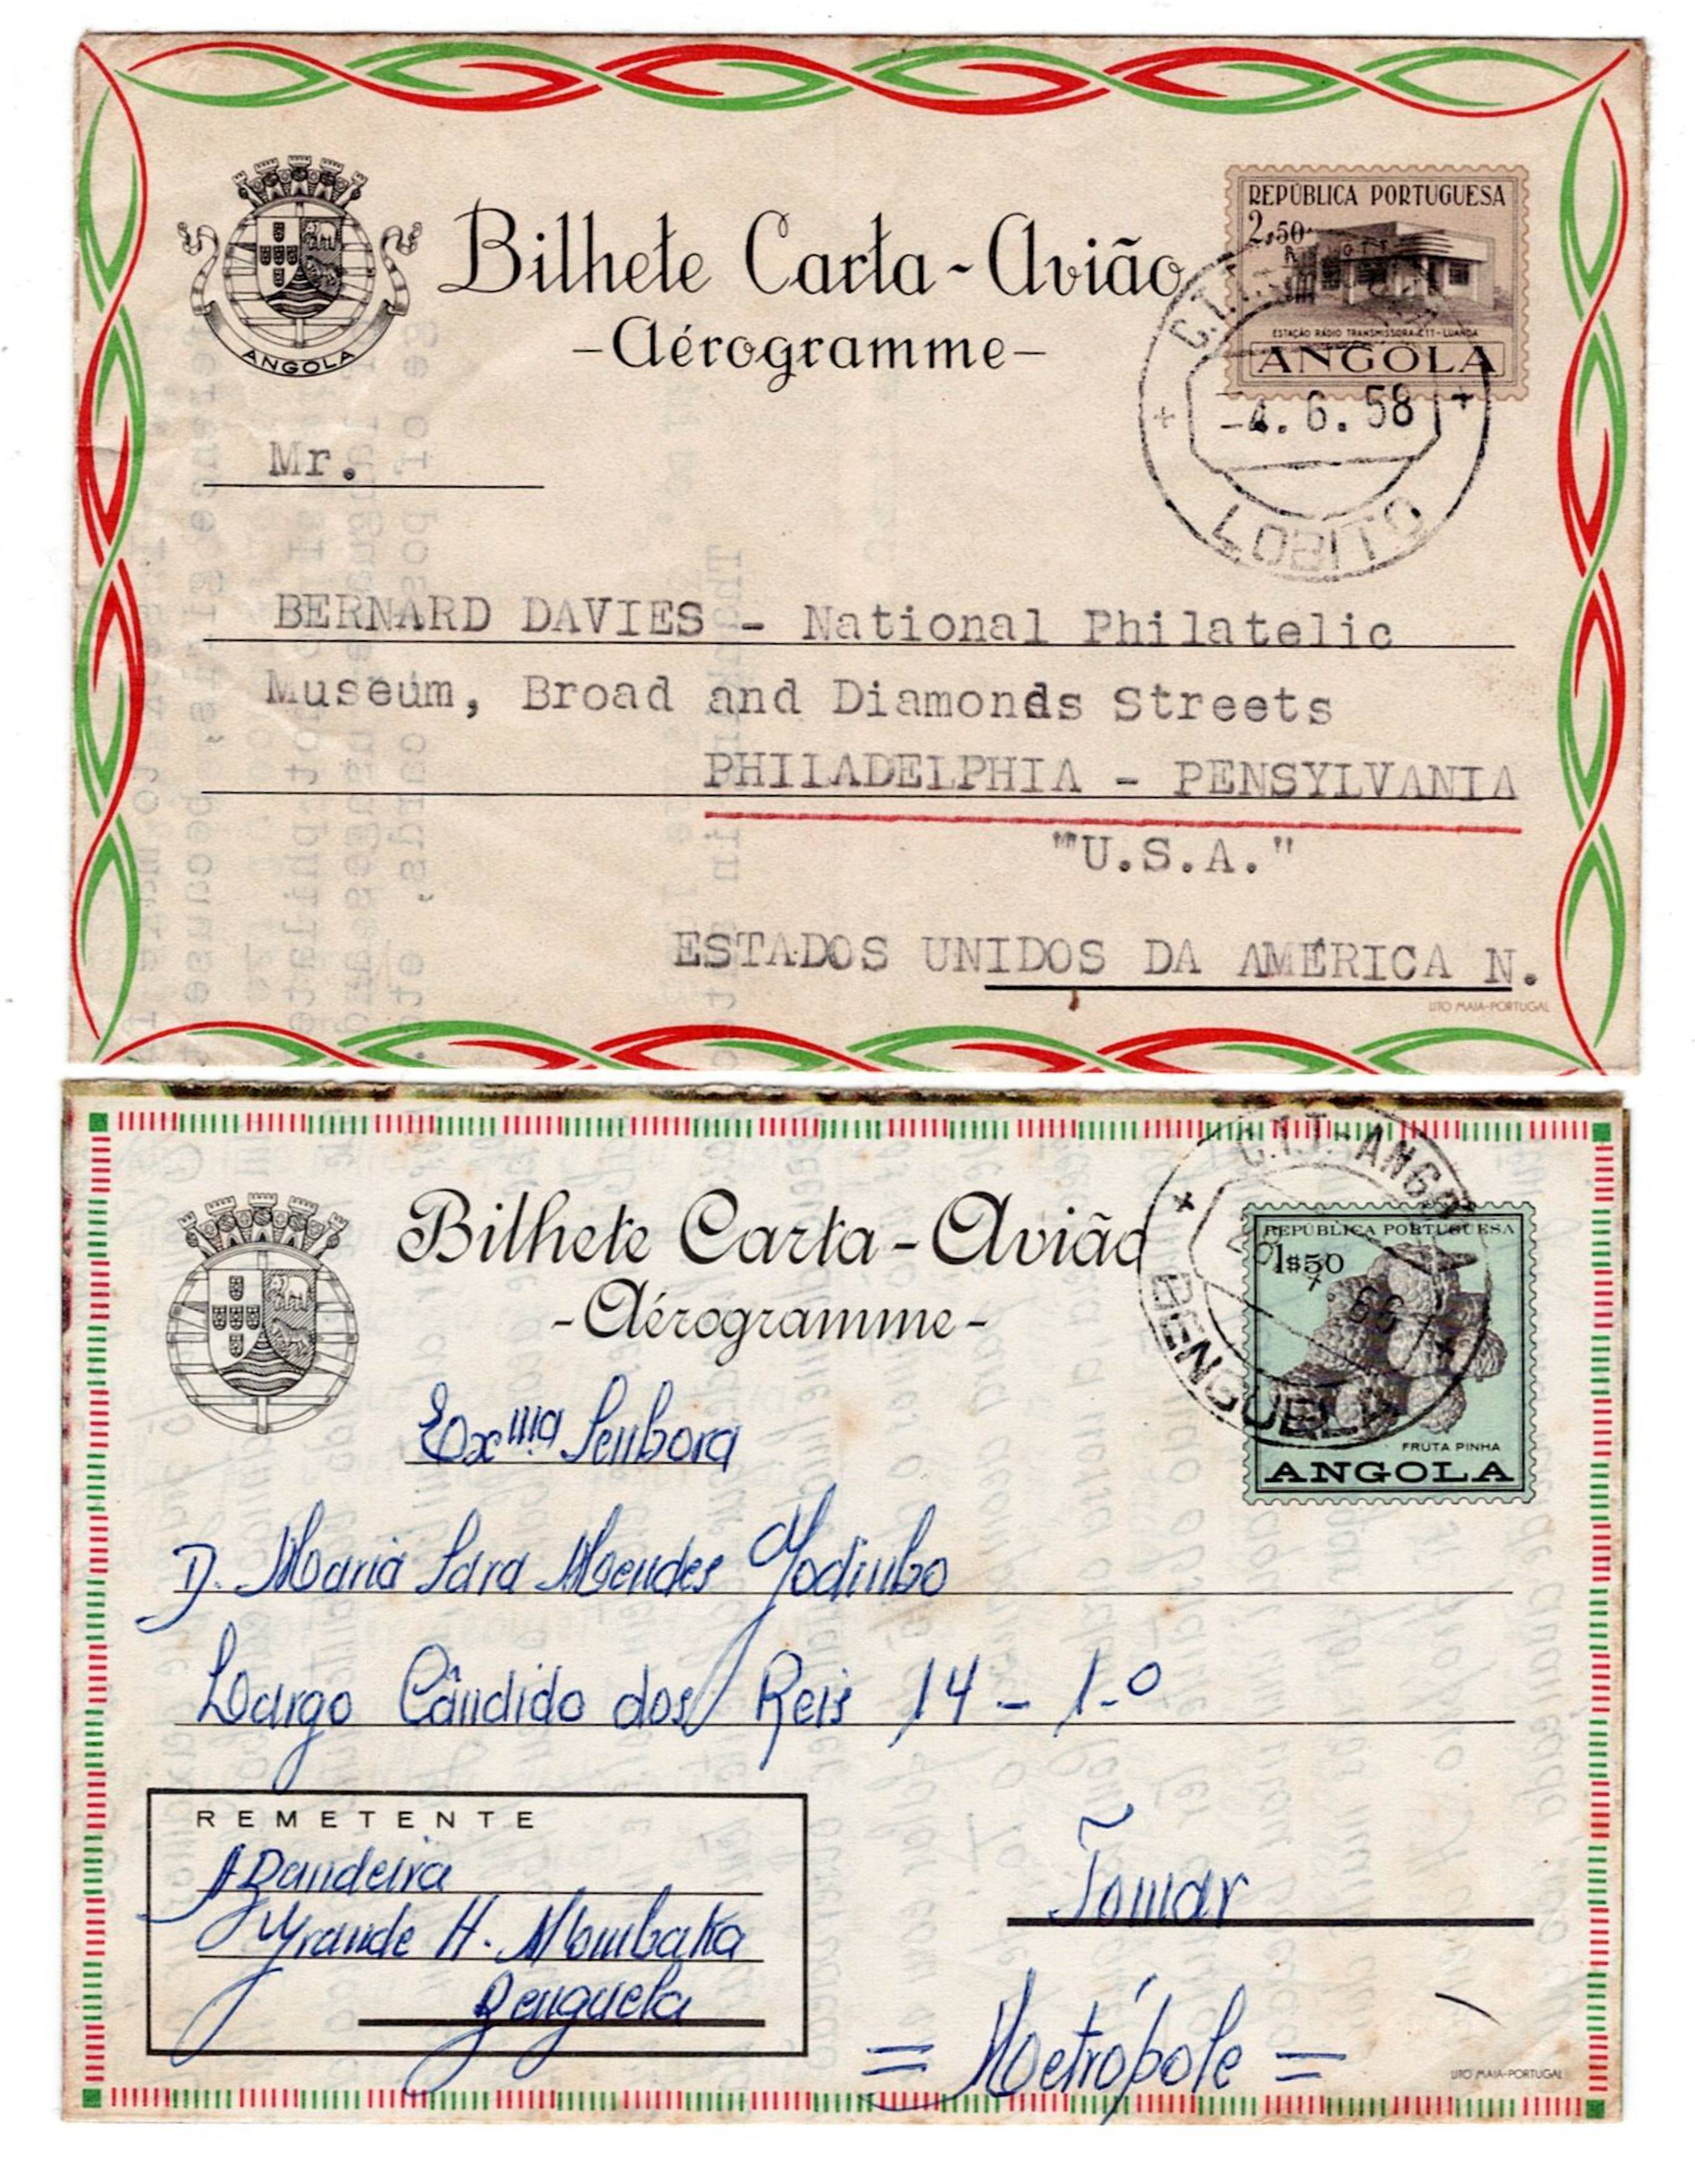 ANGOLA
Bilhete Carta-Avião
-Aérogramme-
REPÚBLICA PORTUGUESA
2,50
ESTAÇÃO RÁDIO TRANSMISSORA CTT-LUANDA
ANGOLA
C.T.T.
-4. 6. 58
LOBITO
Mr.
BERNARD DAVIES - National Philatelic
Museum, Broad and Diamonds Streets
PHILADELPHIA - PENSYLVANIA
"U.S.A."
ESTADOS UNIDOS DA AMÉRICA N.
LITO MAIA-PORTUGAL
Bilhete Carta-Avião
-Aérogramme-
C.T.T.-ANGOLA
BENGUELA
REPÚBLICA PORTUGUESA
1$50
FRUTA PINHA
ANGOLA
Exma Senhora
D. Maria Sara Mendes Godinho
Largo Cândido dos Reis 14 - 1.º
REMETENTE
A Bandeira
Grande H. Mombaka
Benguela
Tomar
= Metrópole =
LITO MAIA-PORTUGAL